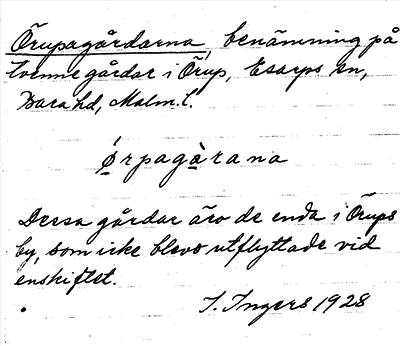 Örupagårdarna, benämning på
tvenne gårdar i Örup, Esarps sn,
Bara hd, Malm. l.
ó̱rpagà̱rana
Dessa gårdar äro de enda i Örups
by, som icke blevo utflyttade vid
enskiftet.
I. Ingers 1928